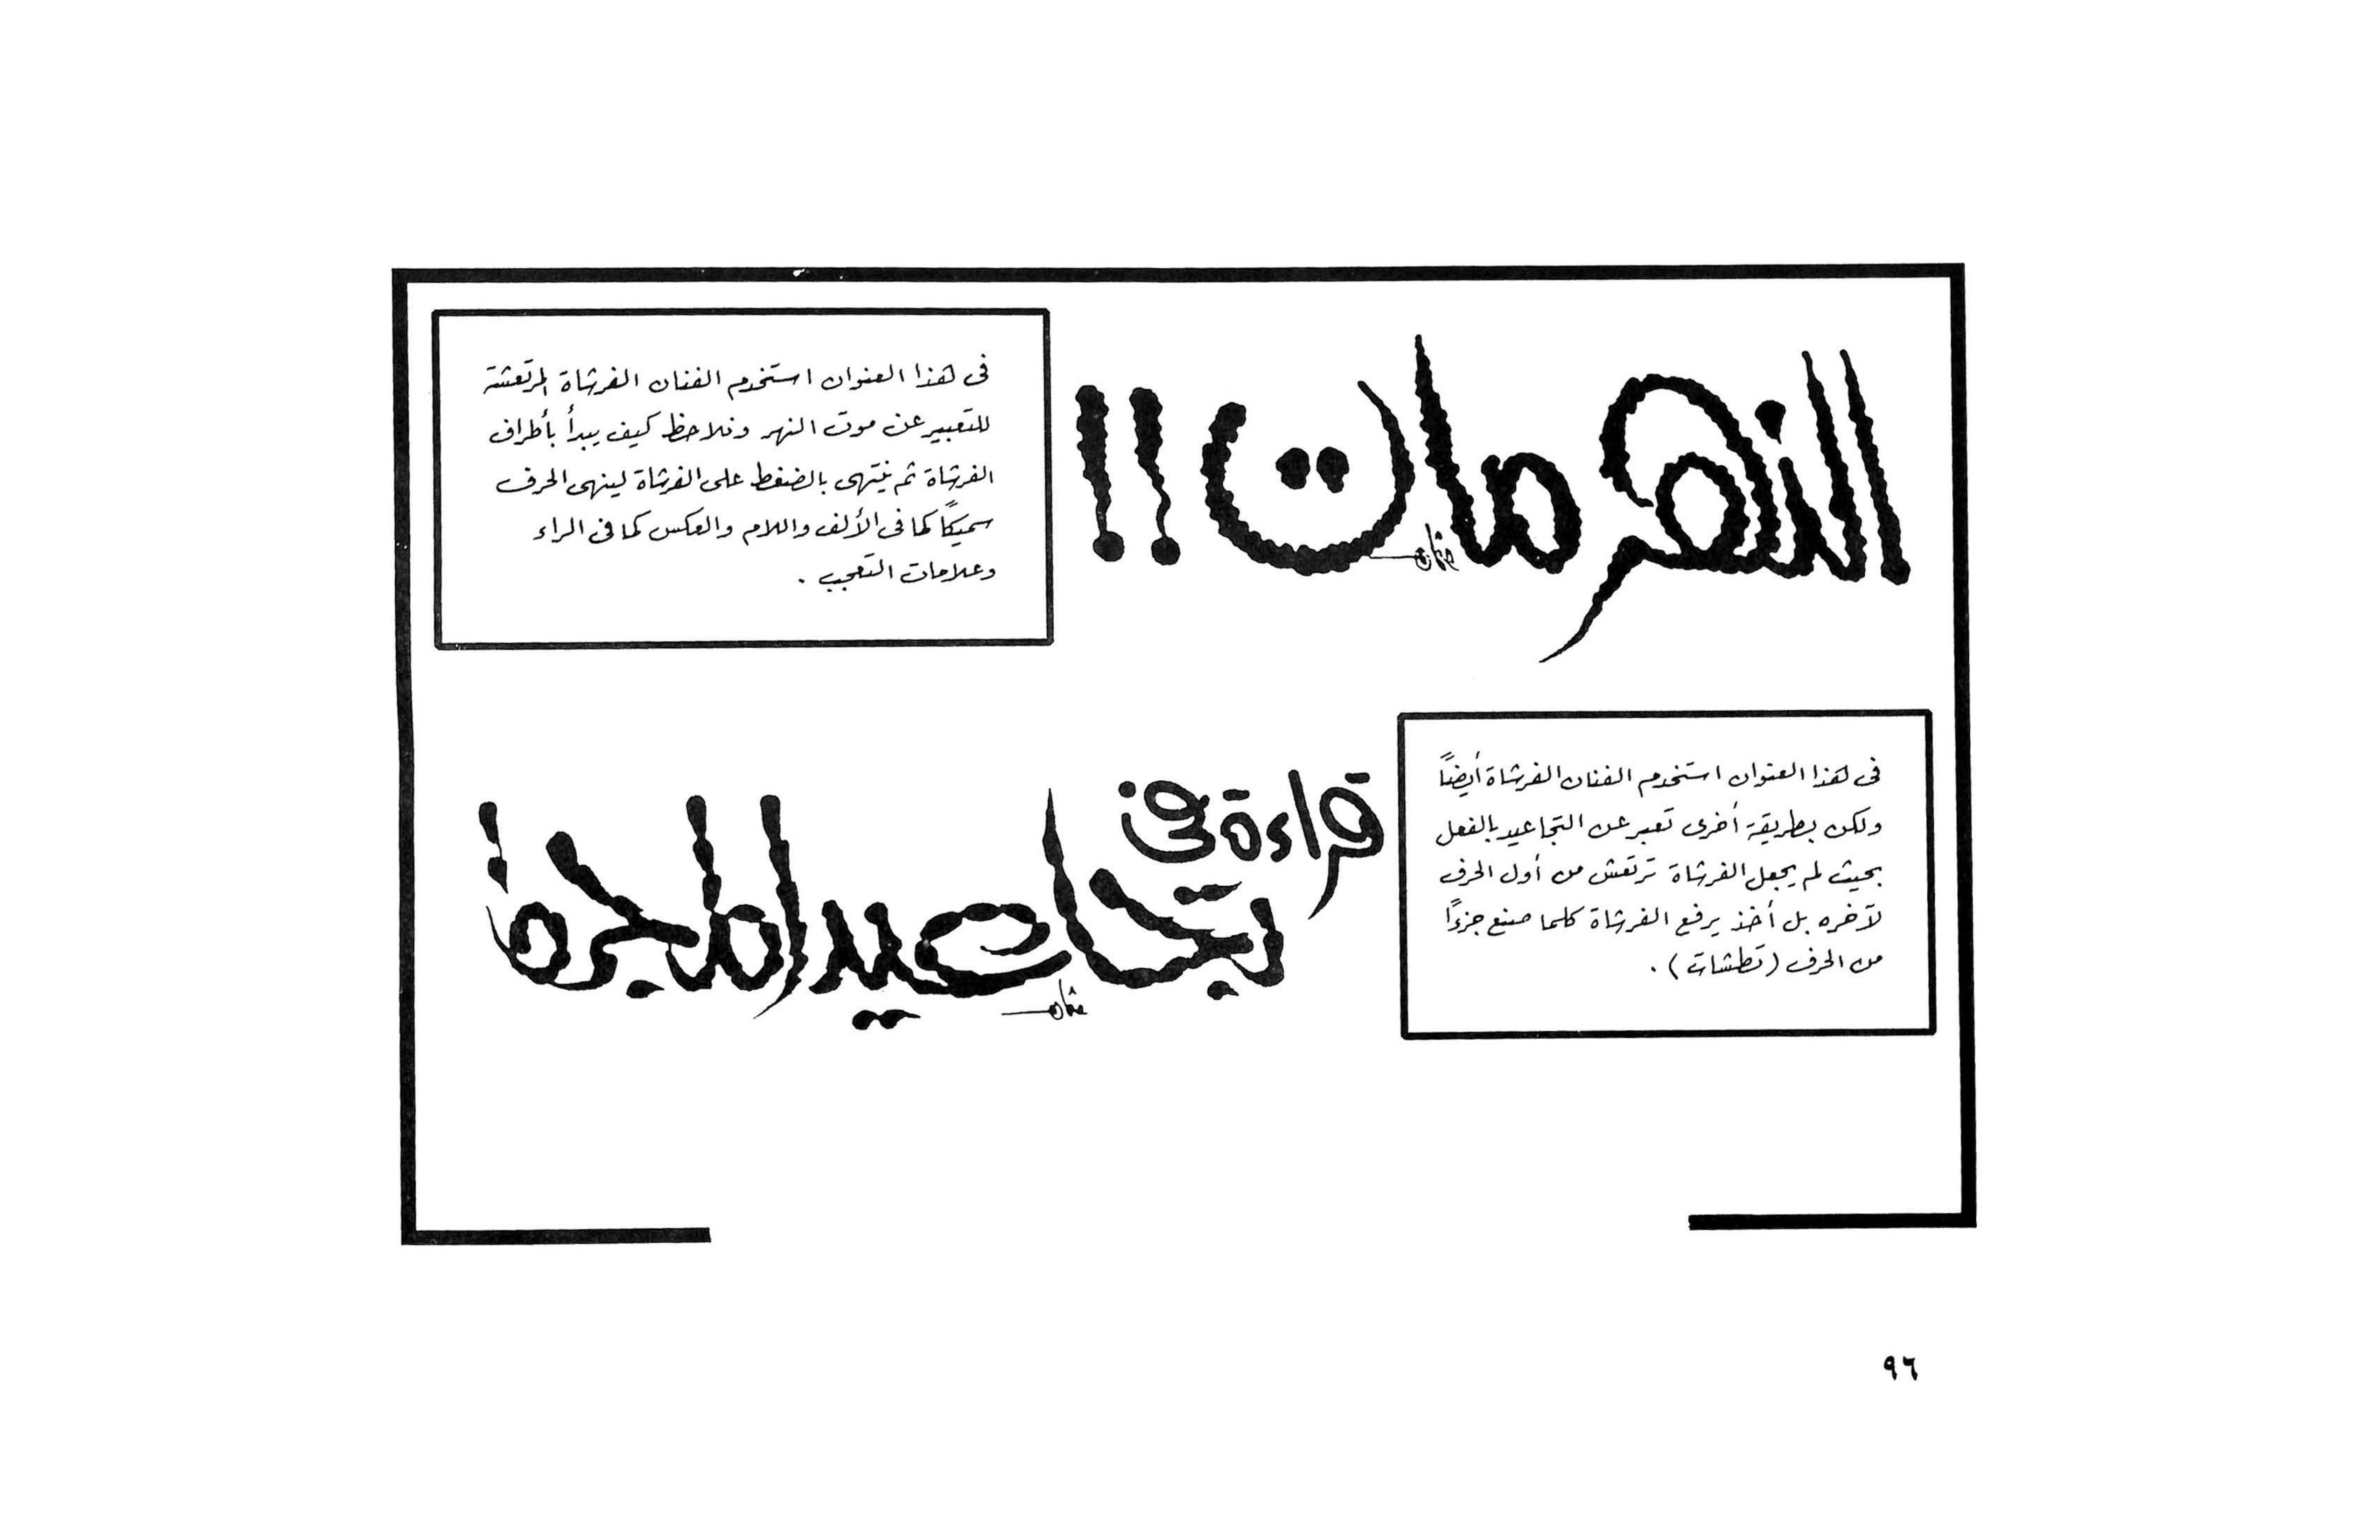 النهر مات !!
عثمان
فى هذا العنوان استخدم الفنان الفرشاة المرتعشة
للتعبير عن موت النهر ونلاحظ كيف يبدأ بأطراف
الفرشاة ثم ينتهى بالضغط على الفرشاة لينهى الحرف
سميكاً كما فى الألف واللام والعكس كما فى الراء
وعلامات التعجب .
فى هذا العنوان استخدم الفنان الفرشاة أيضاً
ولكن بطريقة أخرى تعبر عن التجاعيد بالفعل
بحيث لم يجعل الفرشاة ترتعش من أول الحرف
لآخره بل أخذ يرفع الفرشاة كلما صنع جزءاً
من الحرف (تطشات) .
قراءة فى
تجاعيد المجرة!
عثمان
٩٦